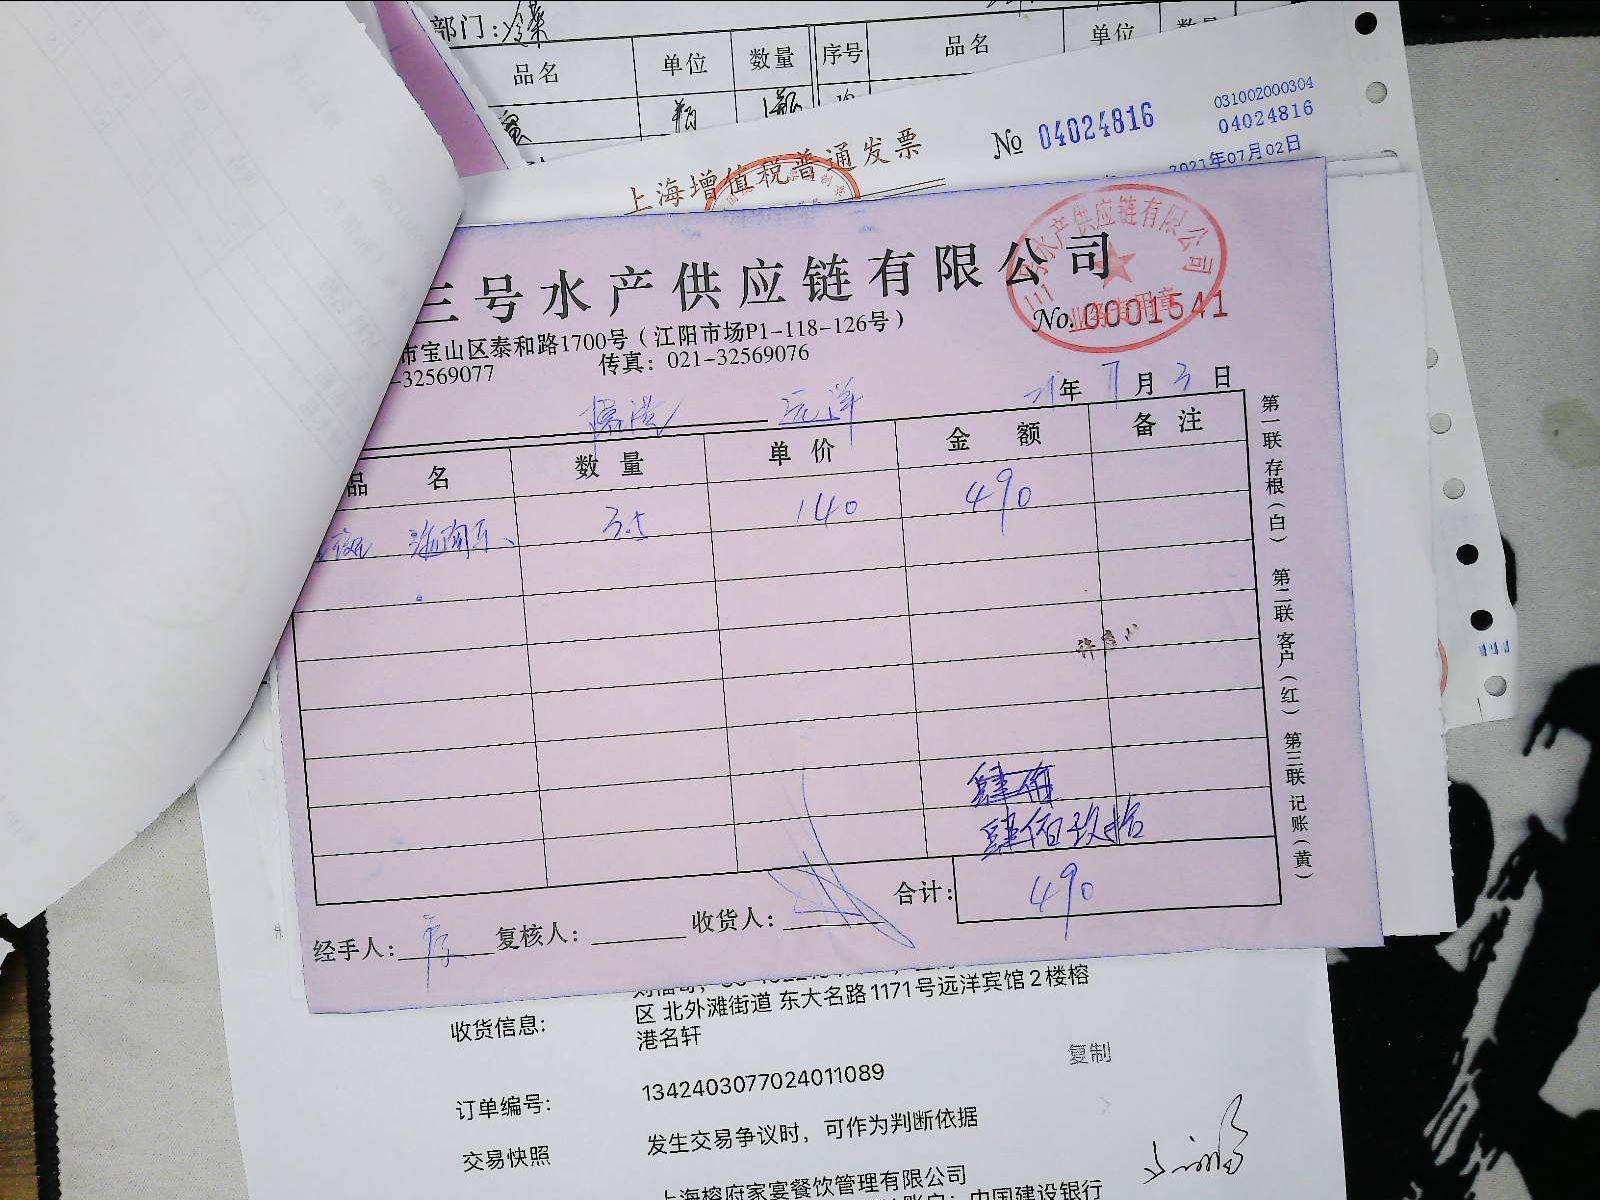 部门:冷菜
品名 单位 数量 序号 品名 单位 数量
瓶 1瓶
031002000304
上海增值税普通发票 No 04024816 04024816
2021年07月02日
三号水产供应链有限公司
三号水产供应链有限公司
业务专用章
No.0001541
市宝山区泰和路1700号(江阳市场P1-118-126号)
-32569077 传真:021-32569076
远洋 21年7月3日
品名 数量 单价 金额 备注
3.5 140 490
肆佰
肆佰玖拾
合计: 490
经手人: 复核人: 收货人:
第一联 存根(白) 第二联 客户(红) 第三联 记账(黄)
收货信息:
区 北外滩街道 东大名路1171号远洋宾馆2楼榕
港名轩
订单编号: 1342403077024011089 复制
交易快照 发生交易争议时,可作为判断依据
上海榕府家宴餐饮管理有限公司
账户:中国建设银行